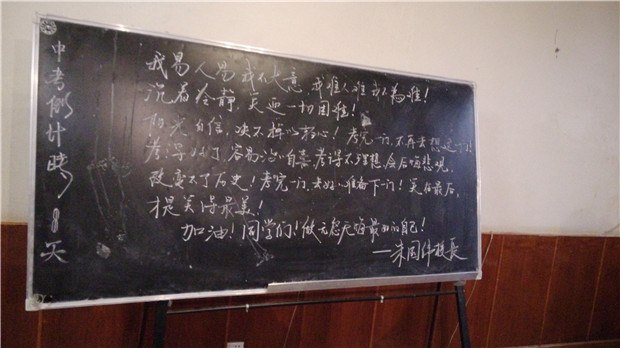 中考倒计时8天
我易人易我不大意,我难人难我不难!
沉着冷静,笑迎一切困难!
阳光自信,决不掉以轻心!考完一门,不再去想这一门!
考得好了容易沾沾自喜,考得不理想,会后悔悲观,
改变不了历史!考完一门,去好好准备下一门!笑在最后,
才是笑得最美!
加油!同学们!做无无悔最的自己!
—朱国伟校长